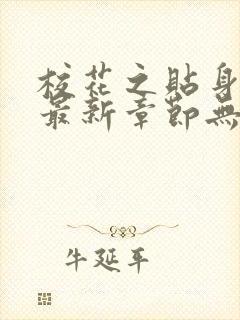 校花之貼身
最新章節無
牛延平